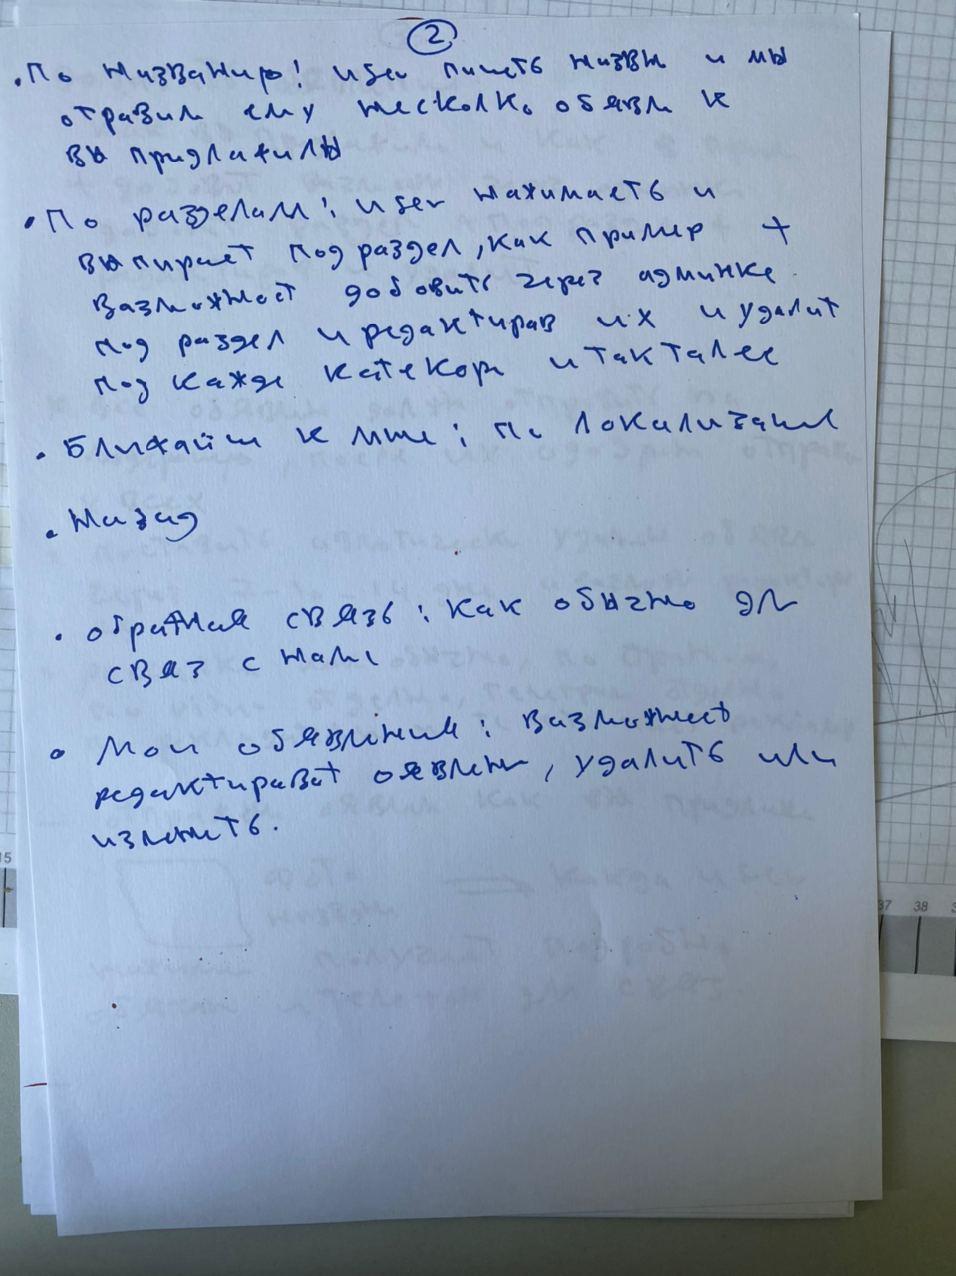 2
. По названию: user пишеть назвн и мы
отравим ему несколко обявл к
вы придлажилы
. По разделам: user нажимаеть и
выпирает под раздел, как пример +
вазможност добовить через админке
под раздел и редактирав их и удалит
под кажде катекори итак талее
. Ближайш к мне: по локализации
. Назад
. обратная связь: как обычно дл
связ с нами
. Мои обявления: вазможност
редактироват оявлен, удалить или
изменить.
37 38